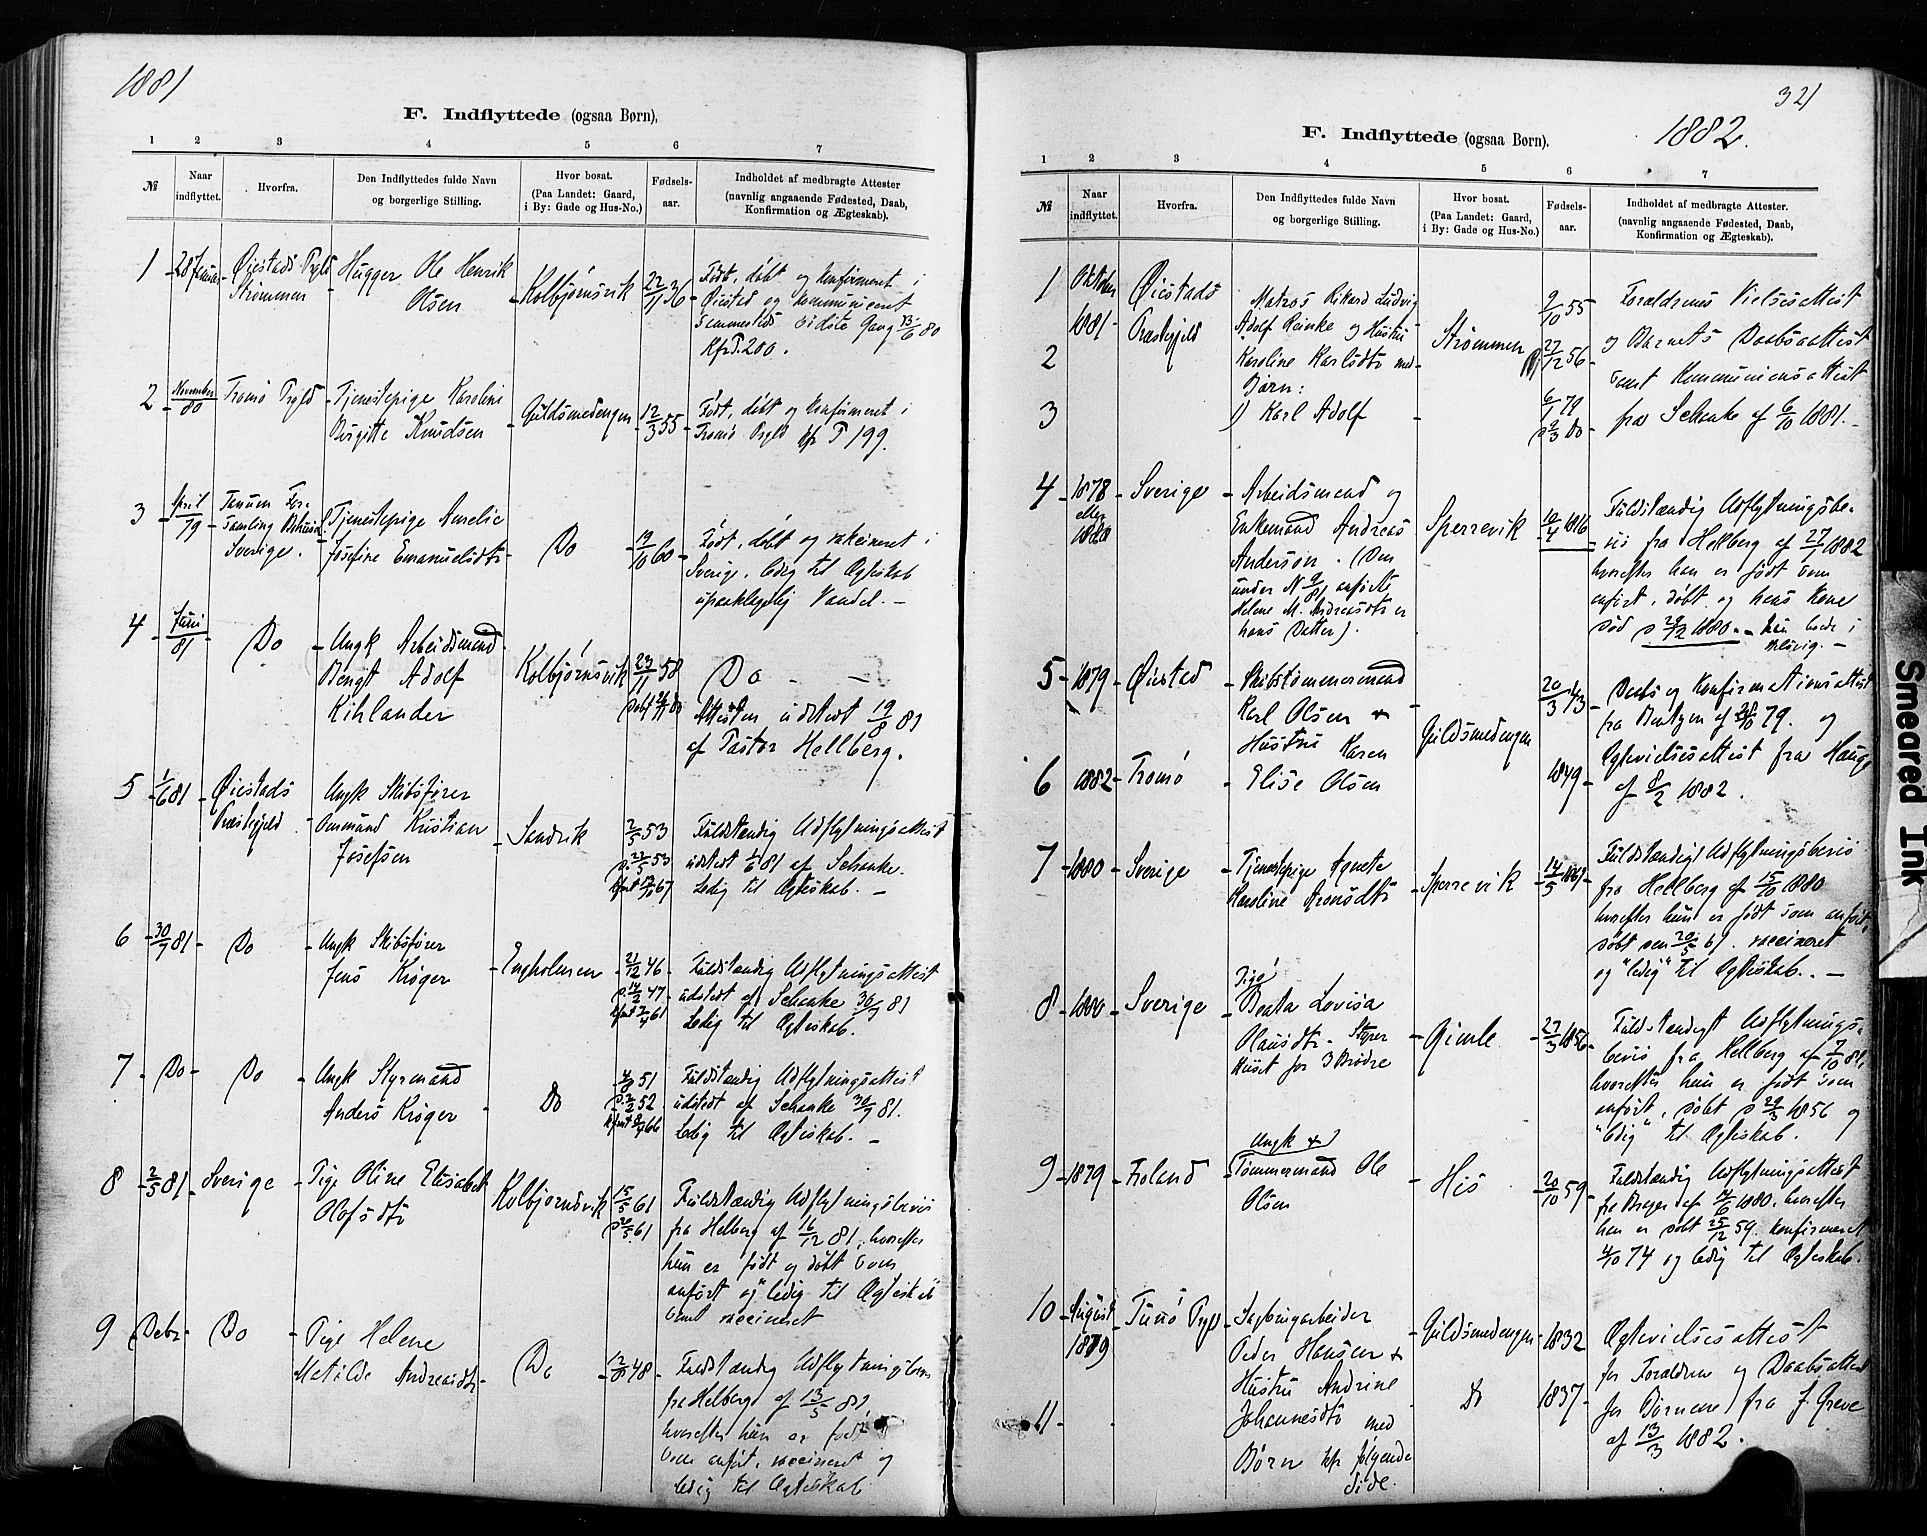 1881
F. Indflyttede (ogsaa Børn).
1 2 3 4 5 6 7
№
Naar
indflyttet.
Hvorfra.
Den Indflyttedes fulde Navn
og borgerlige Stilling.
Hvor bosat.
(Paa Landet: Gaard,
i By: Gade og Hus-No.)
Fødsels-
aar.
Indholdet af medbragte Attester
(navnlig angaaende Fødested, Daab,
Konfirmation og Ægteskab).
1 - 28 Januar - Øiestads Prgld
Strømmen
Hugger Ole Henrik
Olsen
Kolbjørnsvik
22/11 36
Født, døbt og konfirmeret i
Øiestad og kommuniceret
sammesteds sidste Gang 13/6 80
Kfr P. 200.
2 - November/80 - Tromø Prgld
Tjenestepige Karoline
Birgitte Knudsen
Guldsmedengen
12/3 55
Født, døbt og konfirmeret i
Tromø Prgld kfr P 199.
3 - April/79 - Tanum For-
samling Bohuslen
Sverige.
Tjenestepige Amelie
Josefine Emanuelsdtr
Do
19/10 60
Født, døbt og vakcineret i
Sverige, ledig til Ægteskab
upaaklagelig Vandel. -
4 - Juni/81 - Do
Ungk Arbeidsmand
Bengt Adolf
Kihlander
Kolbjørnsvik
23/11 58
Do - -
Attesten udstedt 19/8 81
af Pastor Hellberg.
5 - 1/6 81 - Øiestads
Præstegjeld
Ungk Skibsfører
Ommund Kristian
Josefsen
Sandvik
2/5 53
Fuldstændig Udflytningsattest
udstedt 1/6 81 af Schanke.
Ledig til Ægteskab. -
6 - 30/7 81 - Do
Ungk Skibsfører
Jens Krøger
Engholmen
21/12 46
d. 14/2 47
Fuldstændig Udflytningsattest
udstedt af Schanke 30/7 81
Ledig til Ægteskab.
7 - Do - Do
Ungk Styrmand
Anders Krøger
Do
Fuldstændig Udflytningsattest
udstedt af Schanke 30/7 81.
Ledig til Ægteskab. -
8 - 2/5 81 - Sverige
Pige Oline Elisabet
Olofsdtr
Kolbjørnsvik
15/5 61
Fuldstændig Udflytningsbevis
fra Helberg af 16/12 81, hvorefter
hun er født og døbt som
anført og "ledig" til Ægteskab
samt vaccineret
9 - Debr - Do
Pige Helene
Matilde Andreasdtr
Do
12/8 48
Fuldstændig Udflytningsbevis
fra Helberg af 13/5 81
hvorefter hun er født
som anført, vaccineret og
ledig til Ægteskab
321
1882.
F. Indflyttede (ogsaa Born).
1 2 3 4 5 6 7
№
Naar
indflyttet.
Hvorfra.
Den Indflyttedes fulde Navn
og borgerlige Stilling.
Hvor bosat.
(Paa Landet: Gaard,
i By: Gade og Hus-No.)
Fødsels-
aar.
Indholdet af medbragte Attester.
(navnlig angaaende Fødested, Daab,
Konfirmation og Ægteskab).
1
2
3
Oktober
1881
Øiestads
Præstegjeld
Matros Rikard Ludvig
Adolf Reinke og Hustru
Karoline Karlsdtr med
Børn:
1) Karl Adolf
Strømmen
9/10 55
27/12 56
6/1 79
Forældrenes Vielsesattest
og Barnets Daabsattest
samt Kommunionsattest
fra Schanke af 6/10 1881.
4 - 1878
eller
1880
Sverige
Arbeidsmand og
Enkemand Andreas
Anderson. (Den
under N 9/81 anførte
Helene M. Andreasdtr er
hans Datter).
Sperrevik
10/4 1816
Fuldstændig Udflytningsbe-
vis fra Hellberg af 27/1 1882
hvorefter han er født som
anført, døbt og hans Kone
død d 29/2 1880.
5 - 1879 - Øiestad
Skibstømmermand
Karl Olsen +
Hustru Karen
Guldsmedengen
20/3 43
Daabs og Konfirmationsattest
fra Bentzen af 28/10 79. og
Ægtevielsesattest fra Hauge
af 8/2 1882.
6 - 1882 - Tromø
Elise Olsen
1849
7 - 1880 - Sverige
Tjenestepige Agneta
Karoline Aronsdtr
Sperrevik
14/5 1861
Fuldstændigt Udflytningsbevis
fra Hellberg af 15/10 1880
hvorefter hun er født som anført,
døbt den 20/5 61. vaccineret
og "ledig" til Ægteskab. -
8 - 1880 - Sverige
Pige
Beata Lovisa
Olausdtr - Styrer
Huset for 3 Brødre
Gimle
27/3 1856
Fuldstændigt Udflytnings-
bevis fra Hellberg af 7/10 81,
hvorefter hun er født som
anført, døbt d 29/3 1856 og
"ledig" til Ægteskab.
9 - 1879 - Froland
Ungk +
Tømmermand Ole
Olsen
His
20/10 59
Fuldstændig Udflytningsattest
fra Breger af 14/6 1880, hvorefter
han er døbt 25/12 59. konfirmeret
4/10 74 og ledig til Ægteskab.
10 - August
1879
Tromø Prgld
Sagbrugarbeider
Peder Hansen +
Hustru Andrine
Johannesdtr med
Børn kfr følgende
Side.
Guldsmedengen
1832
Ægtevielsesattest
for Forældrene og Daabsattest
for Børnene fra J. Greve
af 13/3 1882.
11 -
Do
1837
Smeared Ink